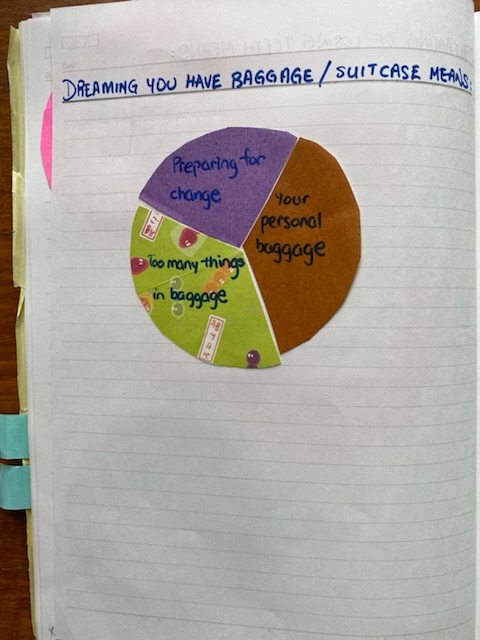 DREAMING YOU HAVE BAGGAGE / SUITCASE MEANS:
Preparing for
change
Your
personal
baggage
Too many things
in baggage